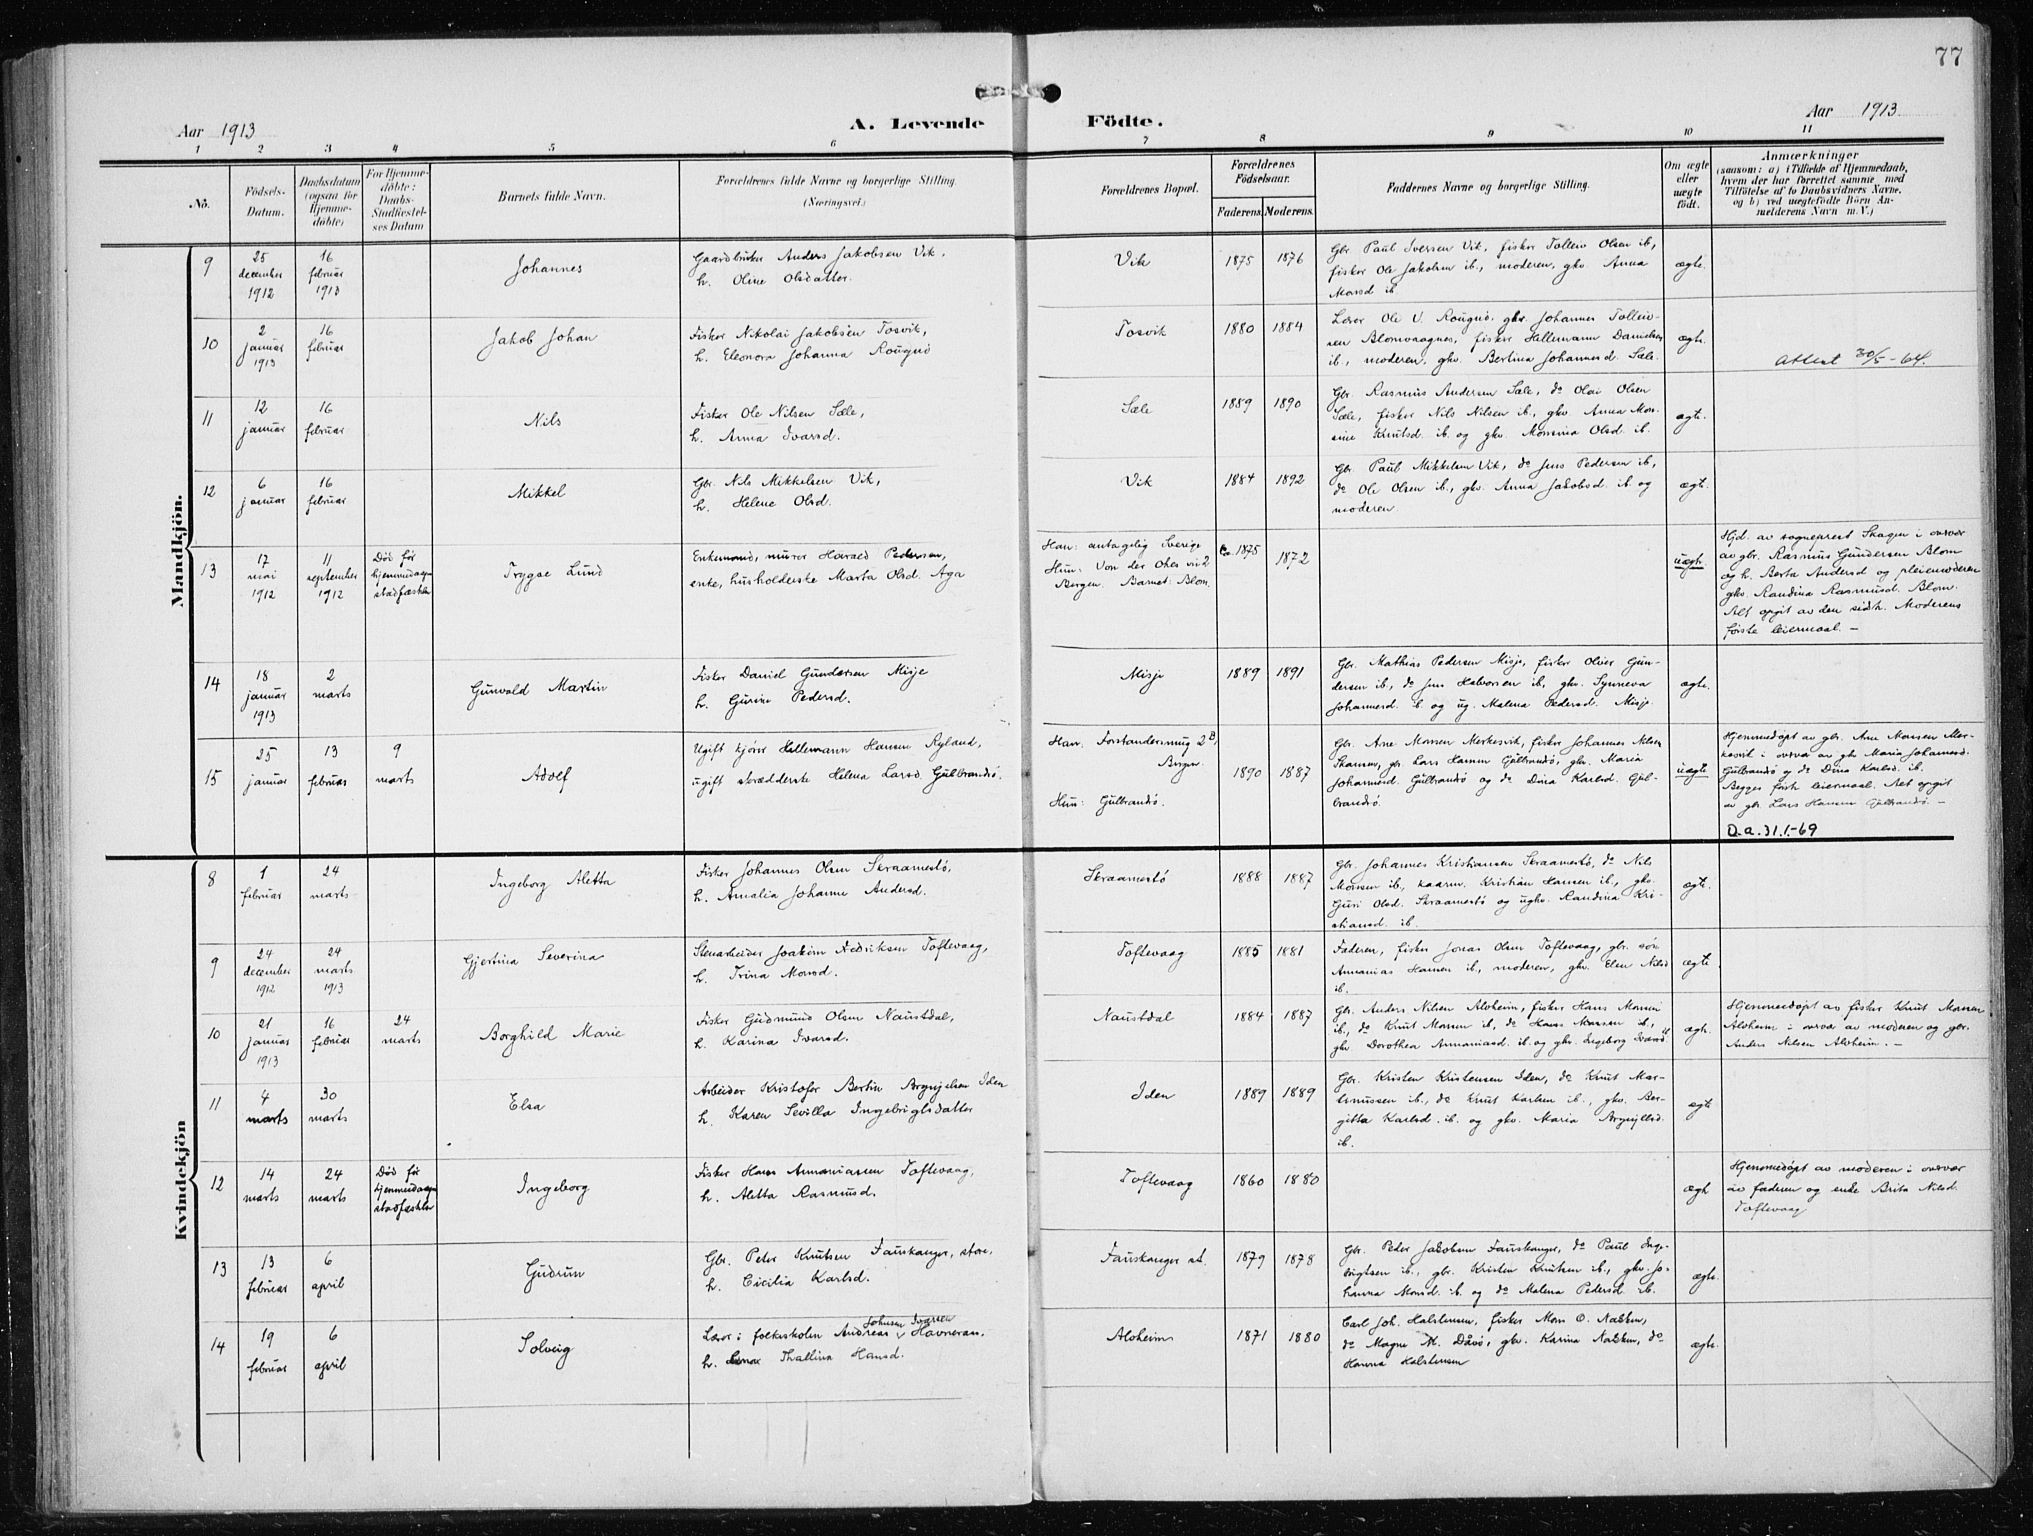 77
Aar 1913
A. Levende
Födte.
Aar 1913
1 2 3 4 5 6 7 8 9 10 11
No.
Födsels-
Datum.
Daabsdatum
(ogsaa for
Hjemme-
döbte)
For Hjemme-
döbte:
Daabs-
Stadfæstel-
ses Datum
Barnets fulde Navn.
Forældrenes fulde Navne og borgerlige Stilling.
(Næringsvei.)
Forældrenes Bopæl.
Forældrenes
Födselsaar.
Faderens. Moderens.
Faddernes Navne og borgerlige Stilling.
Om ægte
eller
uægte
födt.
Anmærkninger
(saasom: a) i Tilfælde af Hjemmedaab,
hvem der har forrettet samme med
Tilföielse af to Daabsvidners Navne.
og b) ved uægtefödte Börn An-
melderens Navn m. V.)
Mandkjön.
9
25
december
1912
16
februar
1913
Johannes
Gaardbruker Anders Jakobsen Vik,
h. Oline Olsdatter.
Vik
1875
1876
Gbr. Paul Iversen Vik, fisker Tolleiv Olsen ib,
fisker Ole Jakobsen ib., moderen, gkv. Anna
Monsd ib.
ægte.
10
2
januar
1913
16
februar
Jakob Johan
Fisker Nikolai Jakobsen Tosvik,
h. Eleonora Johanna Rougnø
Tosvik
1880
1884
Lærer Ole V. Rougnø. gbr. Johannes Tolleiv-
sen Blomvaagnes, fisker Hellemann Danielsen
ib., moderen, gkv. Bertina Johannesd Sæle.
ægte.
Attest 30/5-64.
11
12
januar
16
februar
Nils
Fisker Ole Nilsen Sæle,
h. Anna Ivarsd.
Sæle
1889
1890
Gbr. Rasmus Andersen Sæle, do Olai Olsen
Sæle, fisker Nils Nilsen ib., gkv. Anna Mon-
sine Knutsd. ib. og gkv. Monsina Olsd. ib.
ægte.
12
6
januar
16
februar
Mikkel
Gbr. Nils Mikkelsen Vik,
h. Helene Olsd.
Vik
1884
1892
Gbr. Paul Mikkelsen Vik, do Jens Pedersen ib,
do Ole Olsen ib., gkv. Anna Jakobsd. ib. og
moderen.
ægte.
13
17
mai
1912
11
september
1912
Død før
hjemmedaapen
stadfæstet
Trygve Lund
Enkemand, murer Harald Pedersen,
enke, husholderske Marta Olsd. Aga
Han: antagelig Sverige
Hun: Von der Ohes vei 2
Bergen. Barnet: Blom.
Ca. 1875
1872
uægte.
Hjd. av sogneprest Skagen i overvær
av gbr. Rasmus Gundersen Blom
og h. Berta Andersd og pleiemoderen
gkv. Randina Rasmusd. Blom.
Alt opgit av den sidste. Moderens
første leiermaal. –
14
18
januar
1913
2
marts
Gunvald Martin
Fisker Daniel Gundersen Misje
h. Gurine Pedersd.
Misje
1889
1891
Gbr. Mathias Pedersen Misje, fisker Oliver Gun-
dersen ib., do Jens Halvorsen ib, gkv. Synneva
Johannesd. ib. og ug. Malena Pedersd. Misje.
ægte.
15
25
januar
13
februar
9
marts
Adolf
Ugift kjører Hellemann Hansen Ryland,
ugift skrædderske Helena Larsd. Gulbrandsø.
Han: Forstandersmug 2B,
Bergen.
Hun: Gulbrandsø.
1890
1887
Gbr. Arne Monsen Merkesvik, fisker Johannes Nilsen
Skarnes, gbr. Lars Hansen Gulbrandsø, gkv. Maria
Johannesd. Gulbrandsø og do Dina Karlsd. Gul-
brandsø.
uægte.
Hjemmedøpt av gbr. Arne Monsen Mer-
kesvik i overvær av gkv. Maria Johannesd.
Gulbrandsø og do Dina Karlsd. ib.
Begges første leiermaal. Alt opgit
av gbr. Lars Hansen Gulbrandsø. –
D.a. 31.1.-69
Kvindekjön
8
1
februar
24
marts
Ingeborg Aletta
Fisker Johannes Olsen Skraamestø,
h. Amalia Johanne Andersd.
Skraamestø
1888
1887
Gbr. Johannes Kristiansen Skraamestø, do Nils
Monsen ib., kaarm. Kristian Hansen ib., gkv.
Guri Olsd. Skraamestø og ugkv. Randina Kri-
stiansd. ib.
ægte.
9
24
december
1912
24
marts
1913
Gjertina Severina
Stenarbeider Joakim Fredriksen Toftevaag,
h. Trina Monsd.
Toftevaag
1885
1881
Faderen, fisker Jonas Olsen Toftevaag, gbr. søn
Annanias Hansen ib., moderen, gkv. Elen Nilsd
ib.
ægte.
10
21
januar
1913
16
februar
24
marts
Borghild Marie
Fisker Gudmund Olsen Naustdal,
h. Karina Ivarsd.
Naustdal
1884
1887
Gbr. Anders Nilsen Alvheim, fisker Hans Monsen
ib, do Knut Monsen ib, do Hans Monsen ib.,
gkv. Dorothea Annaniasd. ib. og gkv. Ingeborg Ivarsd. ib
ægte.
Hjemmedøpt av fisker Knut Monsen
Alvheim i overvær av moderen og gbr.
Anders Nilsen Alvheim. –
11
4
marts
30
marts
Elsa
Arbeider Kristofer Bertin Brynjelsen Iden
h. Karen Sevilla Ingebrigtsdatter
Iden
1889
1889
Gbr. Kristen Kristensen Iden, do Knut Mar-
tinussen ib., do Knut Karlsen ib., gkv. Ber-
gitta Karlsd. ib. og gkv. Maria Brynjelsd.
ib.
ægte
12
14
marts
24
marts
Død før
hjemmedaapen
stadfæstet
Ingeborg
Fisker Hans Annaniassen Toftevaag,
h. Aletta Rasmusd.
Toftevaag
1860
1880
ægte
Hjemmedøpt av moderen i overvær
av faderen og enke Brita Nilsd.
Toftevaag
13
13
februar
6
april
Gudrun
Gbr. Peter Knutsen Fauskanger, store,
h. Cicilia Karlsd.
Fauskanger st.
1879
1878
Gbr. Peder Jakobsen Fauskanger, do Paul Inge-
brigtsen ib., gbr. Kristen Knutsen ib., gkv. Jo-
hanna Monsd. ib. og do Malena Pedersd. ib.
ægte.
14
19
februar
6
april
Solveig
Johnsen Ivarsen
Lærer i folkeskolen Andreas v Havneraas,
h. Thallina Hansd.
Alvheim
1871
1880
Carl Joh. Halstensen, fisker Mons O. Nabben,
do Magne M. Dåvø, gkv. Karina Nabben, do
Hanna Halstensen
ægte.